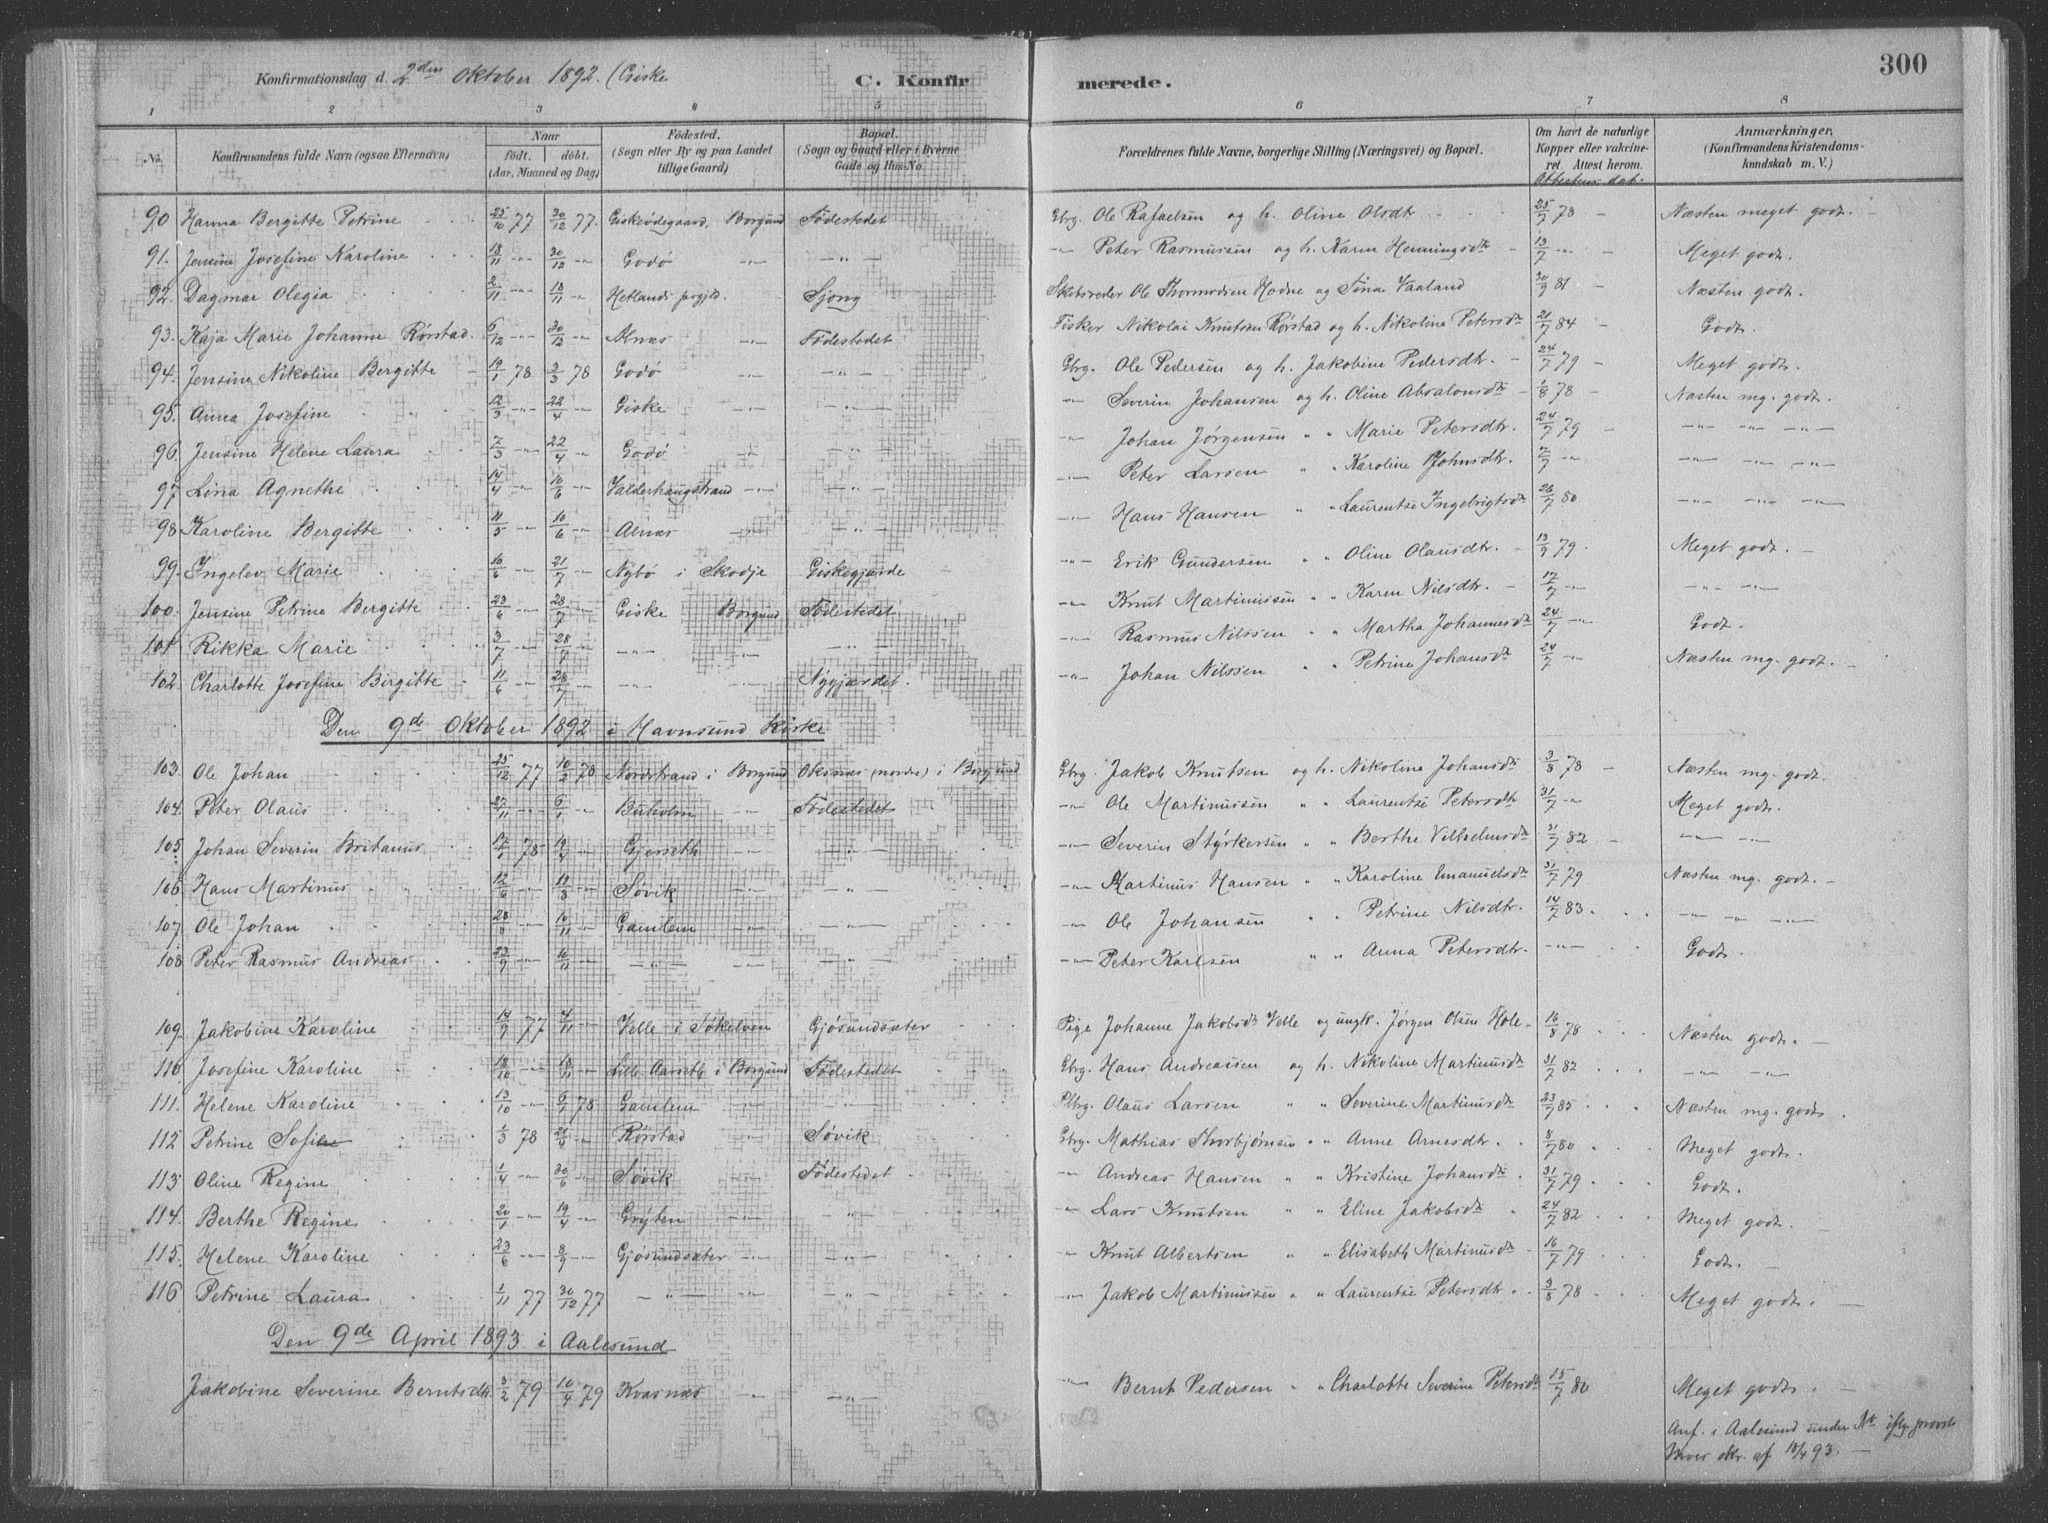 300
Konfirmationsdag d. 2den Oktober 1892. (Giske
C. Konfirmerede.
1 2 3 4 5 6 7 8
No. Konfirmandens fulde Navn (ogsaa Efternavn) Naar født. døbt. (Aar, Maaned og Dag) Fødested. (Sogn eller By og paa Landet tillige Gaard) Bopæl. (Sogn og Gaard eller i Byerne Gade og Hus-No. Forældrenes fulde Navne, borgerlige Stilling (Næringsvei) og Bopæl. Om havt de naturlige Kopper eller vaccineret. Attest herom. Attestens dat. Anmærkninger, (Konfirmandens Kristendomskundskab m. V.)
90 Hanna Bergitte Petrine 25/10 77 30/12 77. Giskeødegaard, Borgund Fødestedet Gbrg. Ole Rafaelsen og h. Oline Olsdtr 25/7 78 Næsten meget godt.
91. Jensine Josefine Karoline 18/11 -"- 30/12 -"- Godø -"- -"- -"- Peter Rasmussen og h. Karen Henningsdtr 13/7 -"- Meget godt.
92. Dagmar Olegia 2/11 -"- 18/11 -"- Hetlands prgjld. Sjong Skibsreder Ole Thormodsen Hodne og Sina Vaaland 30/9 81 Næsten godt.
93. Kaja Marie Johanne Rørstad. 6/12 -"- 30/12 -"- Alnæs -"- Fødestedet Fisker Nikolai Knutsen Rørstad og h. Nikoline Petersdtr 21/7 84 Godt.
94. Jensine Nikoline Bergitte 19/1 78 3/3 78 Godø -"- -"- Gbrg. Ole Pedersen og h. Jakobine Pedersdtr. 24/7 79 Meget godt.
95. Anna Josefine 12/3 -"- 22/4 -"- Giske -"- -"- -"- Severin Johansen og h. Oline Absalonsdtr 1/8 78 Næsten mg. godt.
96. Jensine Helene Laura 7/3 -"- 22/4 -"- Godø -"- -"- -"- Johan Jørgensen " " Marie Petersdtr. 24/7 79 -"- -"- -"-
97 Lina Agnethe 14/4 -"- 10/6 -"- Valderhaugstrand -"- -"- -"- Peter Larsen " " Karoline Johnsdtr. 2/7 -"- -"- -"- -"-
98 Karoline Bergitte 11/5 -"- 10/6 -"- Alnæs -"- -"- -"- Hans Hansen " " Laurentse Ingebrigtsdtr 26/7 80 -"- -"- -"-
99. Ingelev Marie 16/6 -"- 21/7 -"- Nybø i Skodje Giskegjærde -"- Erik Gundersen " " Oline Olausdtr. 13/9 79. Meget godt.
100. Jensine Petrine Bergitte 23/6 -"- 28/7 -"- Giske Borgund Fødestedet -"- Knut Martinussen " " Karen Nilsdtr. 17/7 -"- -"- -"-
101 Rikka Marie 3/7 -"- 28/7 -"- -"- -"- -"- -"- Rasmus Nilssen " " Martha Johannesdtr 24/7 -"- Godt.
102. Charlotte Josefine Birgitte 11/6 -"- 28/7 -"- -"- -"- Nygjærdet. -"- Johan Nilssen " " Petrine Johansdtr 24/7 -"- Næsten mg. godt.
Den 9de Oktober 1892 i Havnsund Kirke
103. Ole Johan 25/12 77 10/2 78 Nordstrand i Borgund Oksnæs (nordre) i Borgund Gbrg. Jakob Knutsen og h. Nikoline Johansdtr 3/8 78 Næsten mg. godt.
104. Peter Olaus 27/11 -"- 6/1 -"- Buholm -"- Fødestedet -"- Ole Martinussen " " Laurentse Petersdtr 31/7 -"- Meget godt.
105 Johan Severin Britanus 17/1 78 19/4 -"- Gjerseth -"- -"- -"- Severin Styrkersen " " Berthe Vilhelmsdtr 31/7 82 -"- -"-
106 Hans Martinus 12/6 -"- 11/8 -"- Søvik -"- -"- -"- Martinus Hansen " " Karoline Emanuelsdtr 31/7 79 Næsten mg. godt.
107 Ole Johan 28/8 -"- 10/11 -"- Gamlem -"- -"- -"- Ole Johansen " " Petrine Nilsdtr. 14/7 83. -"- -"- -"-
108 Peter Rasmus Andreas 23/9 -"- 10/11 -"- -"- -"- -"- -"- Peter Karlsen " " Anna Petersdtr. -"- Godt.
109. Jakobine Karoline 14/9 77 4/11 -"- Velle i Søkelven Gjøsundsæter Pige Johanne Jakobsdtr Velle og ungk. Jørgen Olsen Hole 16/8 78 Næsten godt.
110 Josefine Karoline 18/10 -"- 18/11 -"- Lille Aarseth i Borgund Fødestedet Gbrg. Hans Andreassen og h. Nikoline Martinusdtr 31/7 82 -"- -"-
111. Helene Karoline 13/10 -"- 6/1 78 Gamlem -"- -"- Plbrg. Olaus Larsen " " Severine Martinusdtr 23/7 85 Næsten mg. godt.
112 Petrine Sofie 1/3 78 21/4 -"- Rørstad -"- Søvik Gbrg. Mathias Thorbjørnsen " " Anne Arnesdtr. 8/7 80 Meget godt.
113 Oline Regine 1/4 -"- 30/6 -"- Søvik -"- Fødestedet -"- Andreas Hansen " " Kristine Johansdtr 31/7 79 Godt.
114. Berthe Regine 20/1 -"- 19/4 -"- Gryten -"- -"- -"- Lars Knutsen " " Eline Jakobsdtr 24/7 82 Meget godt.
115. Helene Karoline 23/6 -"- 8/9 -"- Gjøsundsæter -"- -"- -"- Knut Albertsen " " Elisabeth Martinusdtr 16/7 79 Godt.
116 Petrine Laura 1/11 77 30/12 77 -"- -"- -"- -"- Jakob Martinussen " " Laurentse Petersdtr. 3/8 78 Meget godt.
Den 9de April 1893 i Aalesund
Jakobine Severine Berntsdtr. 3/2 79 10/4 79 Kvasnæs -"- -"- -"- Bernt Pedersen " " Charlotte Severine Petersdtr 15/7 80 Meget godt.
Anf. i Aalesund under No iflg. provst
skr. af 18/4 93.